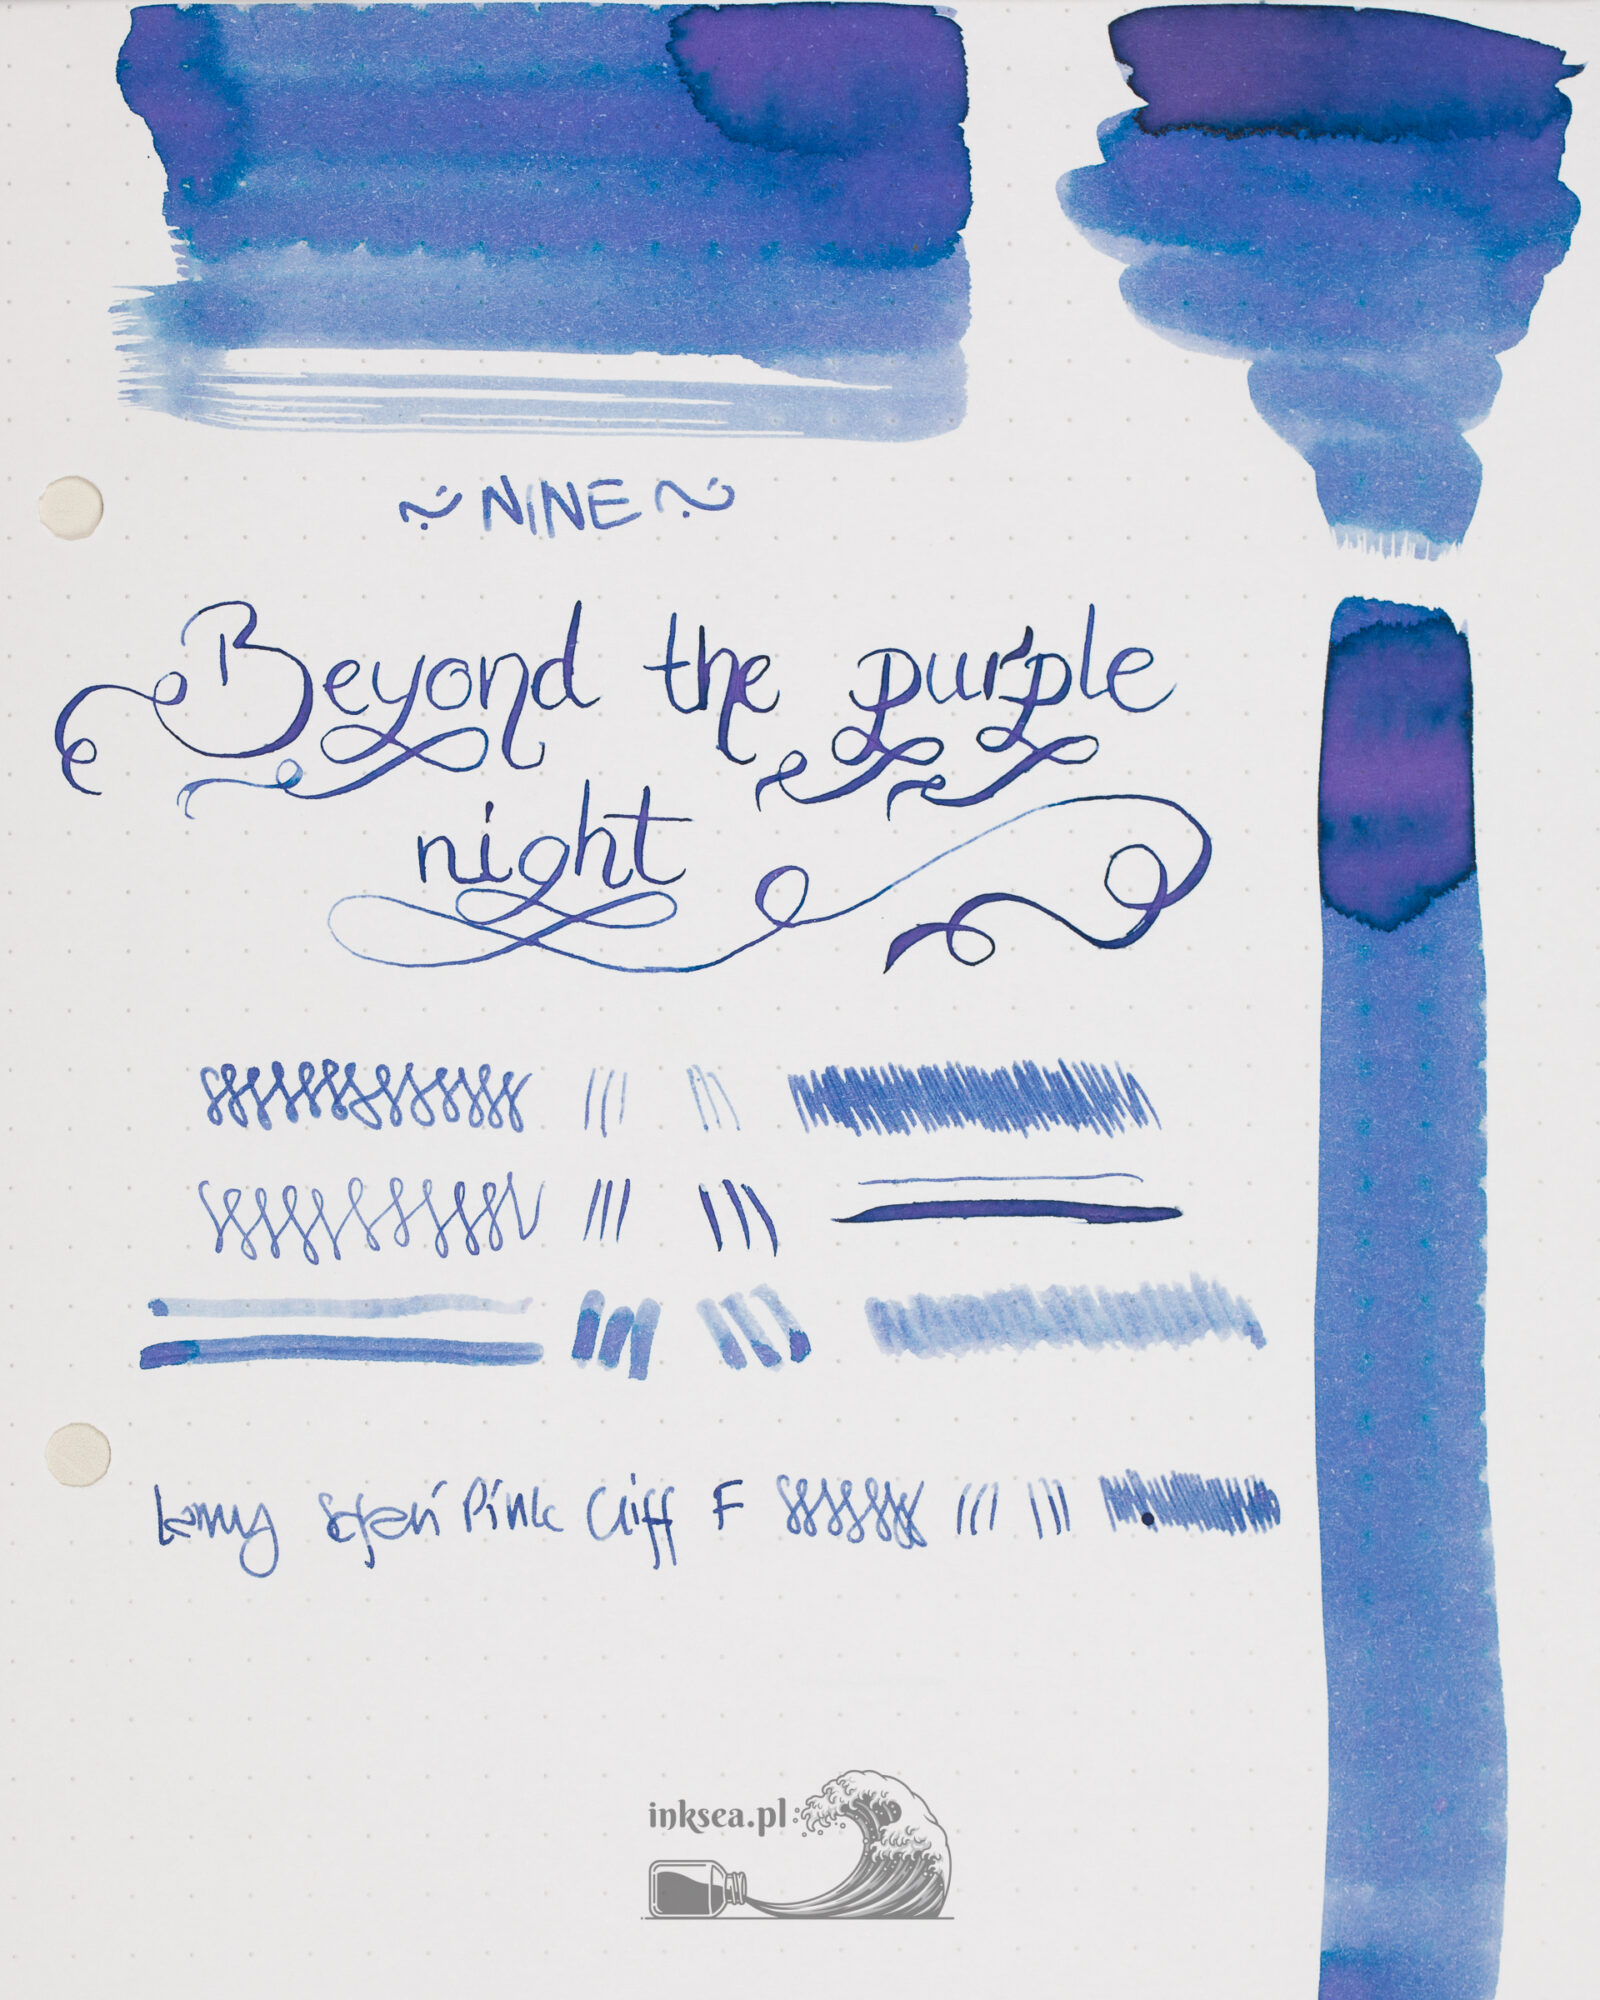 ~ NINE ~
Beyond the purple
night
Lamy Safari Pink Cliff F
inksea.pl